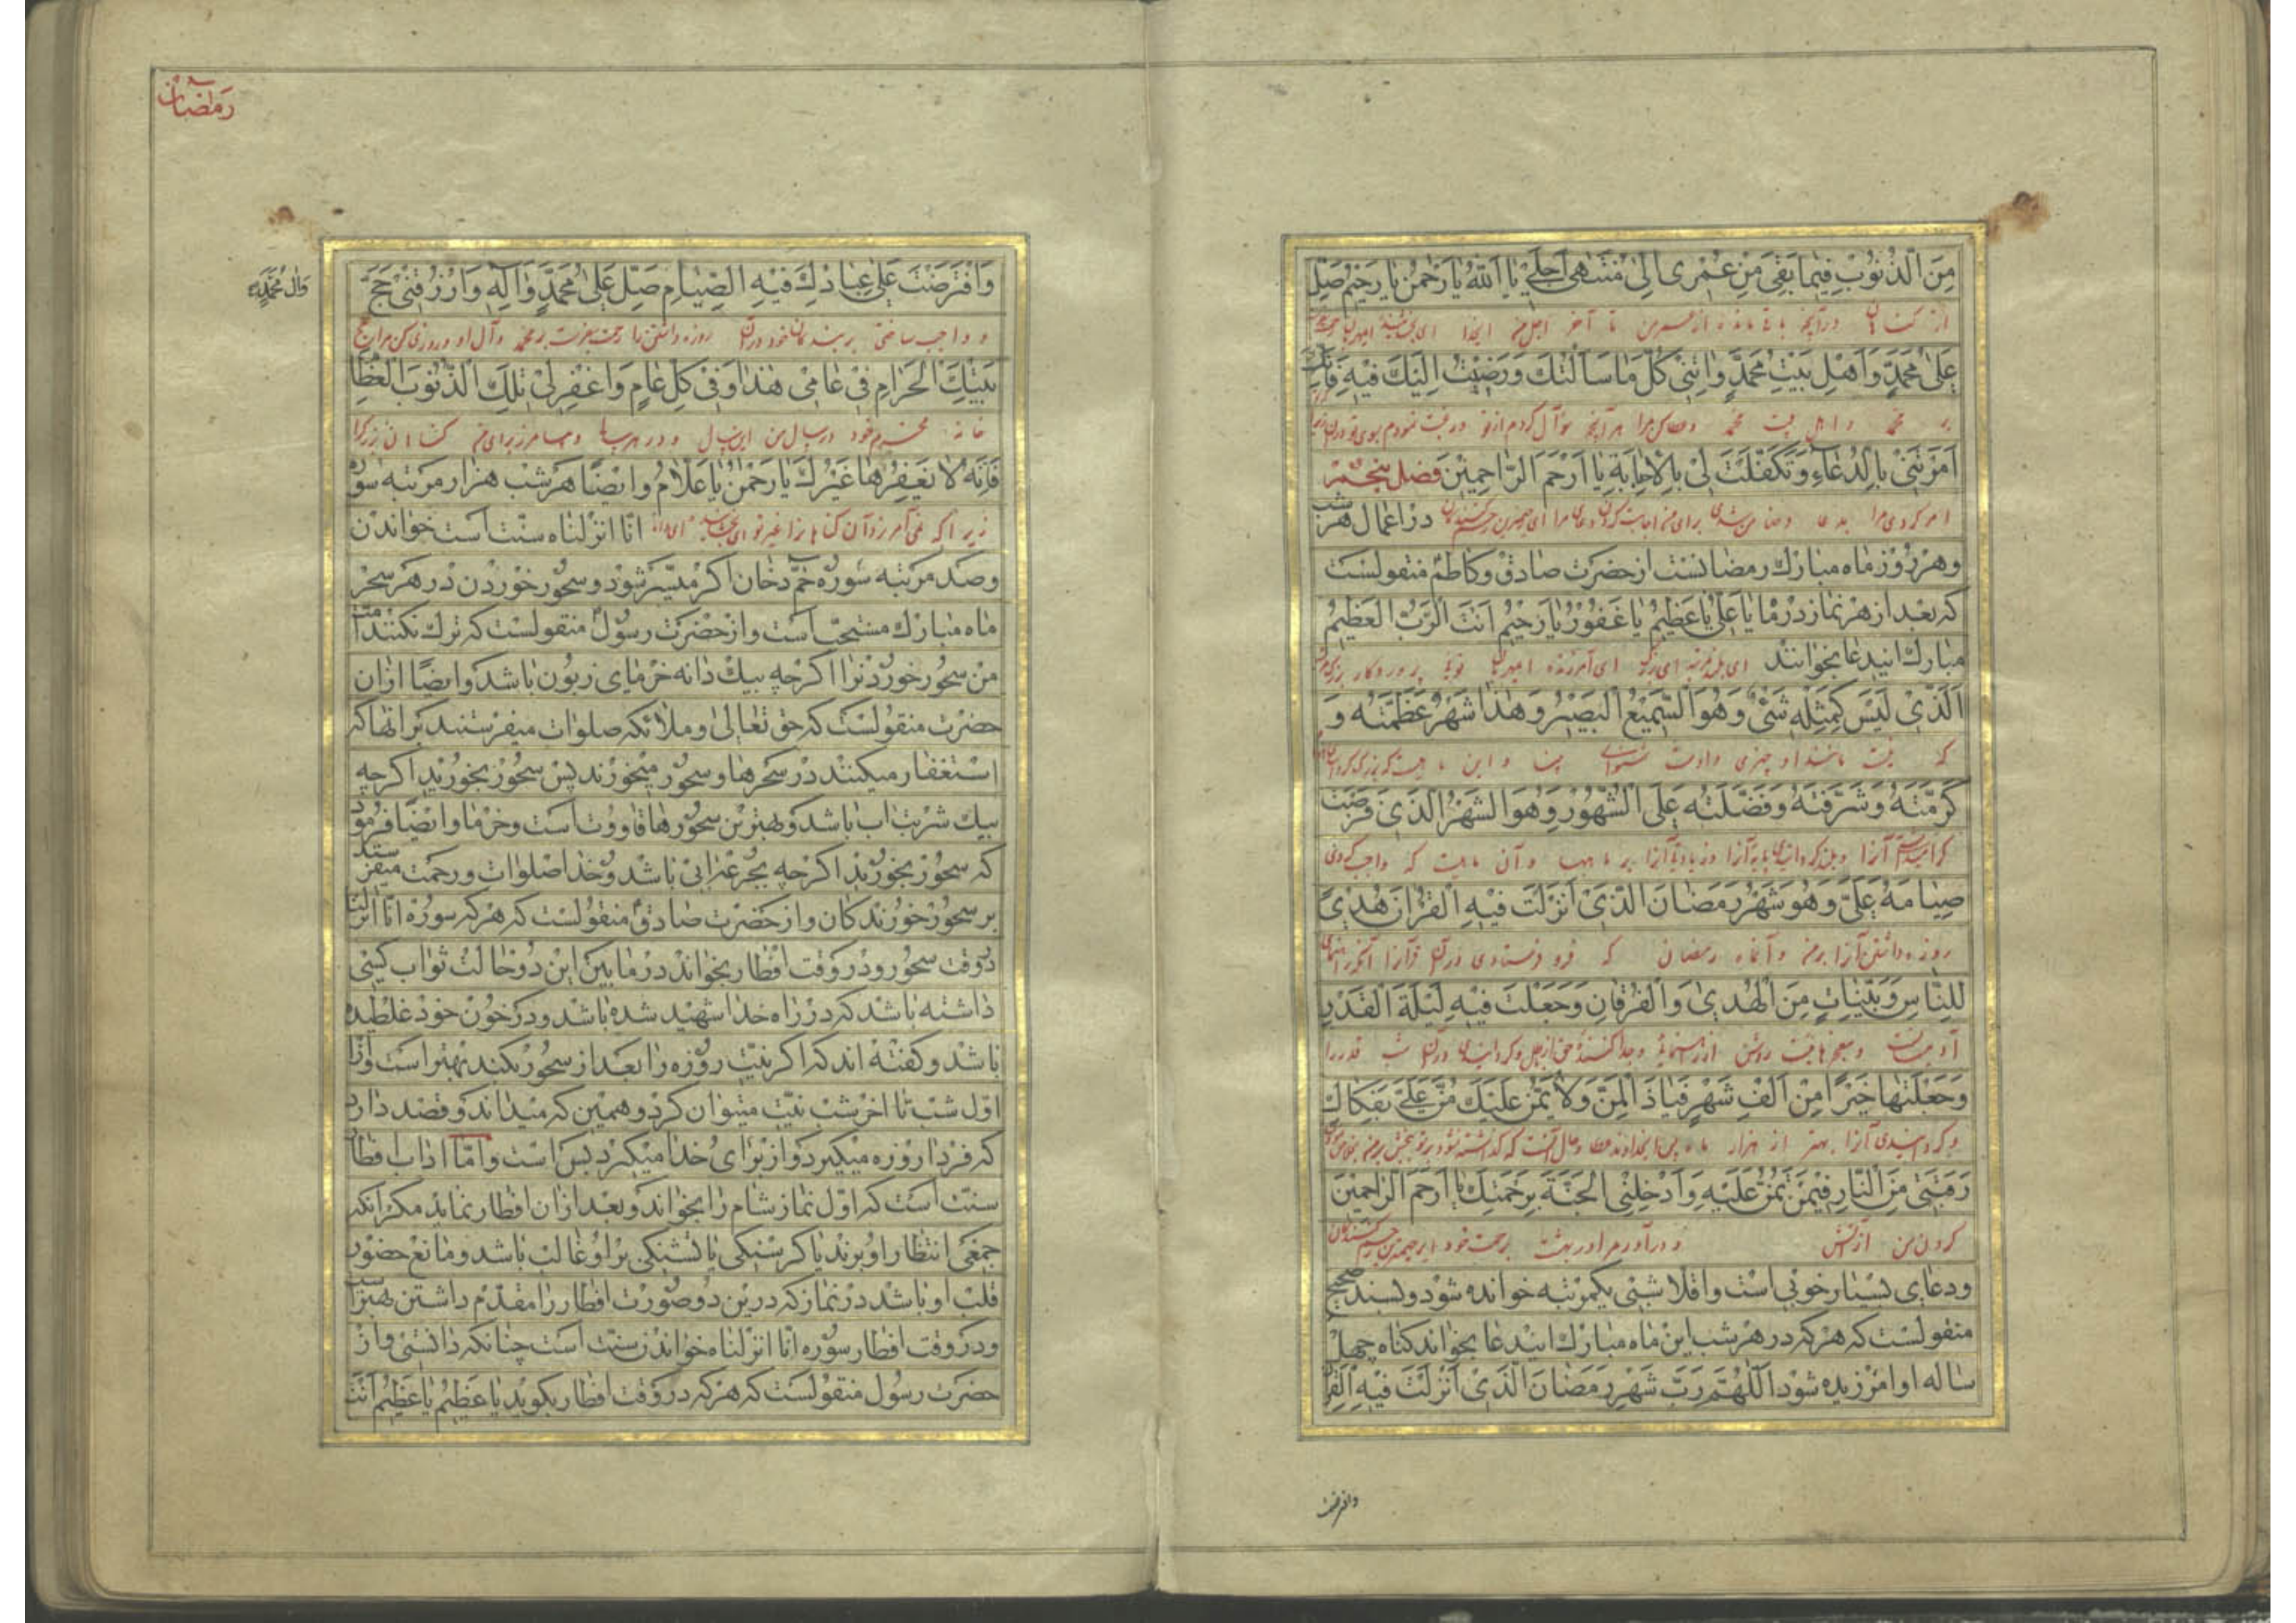 مِنَ الذُّنُوبِ فِيمَا بَقِيَ مِنْ عُمْرِي اِلىٰ مُنْتَهىٰ اَجَلِي يَا اَللّٰهُ يَا رَحْمٰنُ يَا رَحِيمُ صَلِّ
از کناهان در آنچه باقی مانده از عمر من تا آخر اجل من ایخدا ای بخشنده ای مهربان
عَلىٰ مُحَمَّدٍ وَاَهْلِ بَيْتِ مُحَمَّدٍ وَاٰتِنِي كُلَّ مَا سَاَلْتُكَ وَرَغِبْتُ اِلَيْكَ فِيهِ فَاِنَّكَ
بر محمد و اهل بیت محمد و عطا کن مرا هر آنچه سؤال کردم از تو و رغبت نمودم بسوی تو در آن زیرا
اَمَرْتَنِي بِالدُّعَاءِ وَتَكَفَّلْتَ لِي بِالْاِجَابَةِ يَا اَرْحَمَ الرَّاحِمِينَ فصل پنجم
امر کردی مرا بدعا و ضامن شدی برای من اجابت کردن دعای مرا ای رحیم‌ترین رحم کنندگان در اعمال هر شب
وهر روز ماه مبارك رمضانست از حضرت صادق وكاظم منقولست
که بعد از هر نماز در ماه يَا عَلِيُّ يَا عَظِيمُ يَا غَفُورُ يَا رَحِيمُ اَنْتَ الرَّبُّ الْعَظِيمُ
مبارك ایندعا بخوانند ای بلند مرتبه ای بزرگ ای آمرزنده ای مهربان توئی پروردکار بزرک
اَلَّذِي لَيْسَ كَمِثْلِهِ شَيْءٌ وَهُوَ السَّمِيعُ الْبَصِيرُ وَهٰذَا شَهْرٌ عَظَّمْتَهُ وَ
که نیست مانند او چیزی و اوست شنوای بینا و این ماهیست که بزرک کردی آنرا
كَرَّمْتَهُ وَشَرَّفْتَهُ وَفَضَّلْتَهُ عَلَى الشُّهُورِ وَهُوَ الشَّهْرُ الَّذِي فَرَضْتَ
آنرا و بلند کردانیدی پایه آنرا و زیادتی آنرا بر ماهها و آن ماهیست که واجب کردی
صِيَامَهُ عَلَيَّ وَهُوَ شَهْرُ رَمَضَانَ الَّذِي اَنْزَلْتَ فِيهِ الْقُرْاٰنَ هُدًى
روزه داشتن آنرا بر من و آنماه رمضان که فرو فرستادی در آن قرآنرا
لِلنَّاسِ وَبَيِّنَاتٍ مِنَ الْهُدىٰ وَالْفُرْقَانِ وَجَعَلْتَ فِيهِ لَيْلَةَ الْقَدْرِ
روشن از رهنمائی و جدا کننده حق از باطل و کردانیدی در آن شب قدر را
وَجَعَلْتَهَا خَيْرًا مِنْ اَلْفِ شَهْرٍ فَيَا ذَا الْمَنِّ وَلَا يُمَنُّ عَلَيْكَ مُنَّ عَلَيَّ بِفَكَاكِ
و کردانیدی آنرا بهتر از هزار ماه پس ایخداوند عطا
رَقَبَتِي مِنَ النَّارِ فِيمَنْ تَمُنُّ عَلَيْهِ وَاَدْخِلْنِي الْجَنَّةَ بِرَحْمَتِكَ يَا اَرْحَمَ الرَّاحِمِينَ
کردن من از آتش و در آور مرا در بهشت برحمت خود ای رحیم‌ترین رحم کنندکان
ودعای بسیار خوبی است واقلا شبی یکمرتبه خوانده شود وبسند صحیح
منقولست که هر که در هر شب این ماه مبارك ایندعا بخواند کناه چهل
ساله او آمرزیده شود اَللّٰهُمَّ رَبَّ شَهْرِ رَمَضَانَ الَّذِي اَنْزَلْتَ فِيهِ الْقُرْاٰنَ
وافترضت
رمضان
وَافْتَرَضْتَ عَلىٰ عِبَادِكَ فِيهِ الصِّيَامَ صَلِّ عَلىٰ مُحَمَّدٍ وَاٰلِهِ وَارْزُقْنِي حَجَّ
وَاٰلِ مُحَمَّدٍ
و واجب ساختی بر بندکان خود در آن روزه داشتن را رحمت بفرست بر محمد و آل او و روزی کن مرا حج
بَيْتِكَ الْحَرَامِ فِي عَامِي هٰذَا وَفِي كُلِّ عَامٍ وَاغْفِرْ لِي تِلْكَ الذُّنُوبَ الْعِظَامَ
خانه محترم خود در سال من این سال و در هر سالها و بیامرز برای من کناهان بزرک را
فَاِنَّهُ لَا يَغْفِرُهَا غَيْرُكَ يَا رَحْمٰنُ يَا عَلَّامُ وایضًا هر شب هزار مرتبه سوره
زیرا که نمی آمرزد آن کناهانرا غیر تو ای بخشنده ای دانا انا انزلناه سنت است خواندن
وصد مرتبه سوره حم دخان اکر میسر شود وسحور خوردن در هر سحر
ماه مبارك مستحب است واز حضرت رسول منقولست که ترك نکنند امت
من سحور خوردنرا اکرچه بیك دانه خرمای زبون باشد وایضًا از آن
حضرت منقولست که حق تعالی وملائکه صلوات میفرستند بر آنها که
استغفار میکنند در سحرها وسحور میخورند پس سحور بخورید اکرچه
بیك شربت آب باشد وبهترین سحورها قاووت است وخرما وایضًا فرمود
که سحور بخورید اکرچه بجرعه آبی باشد وخدا صلوات ورحمت میفرستد
بر سحور خورندکان واز حضرت صادق منقولست که هر که سوره انا انزلنا
در وقت سحور ودر وقت افطار بخواند در ما بین این دو حالت ثواب کسی
داشته باشد که در راه خدا شهید شده باشد ودر خون خود غلطیده
باشد وکفته اند که اکر نیت روزه را بعد از سحور بکند بهتر است واز
اول شب تا آخر شب نیت میتوان کرد وهمین که میداند وقصد دارد
که فردا روزه میکیرد واز برای خدا میکیرد بس است واما آداب افطار
سنت است که اول نماز شام را بخواند وبعد از آن افطار نماید مکر آنکه
جمعی انتظار او برند یا کرسنکی یا تشنکی بر او غالب باشد ومانع حضور
قلب او باشد در نماز که درین دو صورت افطار را مقدم داشتن بهتر است
ودر وقت افطار سوره انا انزلناه خواندن سنت است چنانکه دانستی واز
حضرت رسول منقولست که هر که در وقت افطار بکوید یَا عَظِيمُ يَا عَظِيمُ اَنْتَ